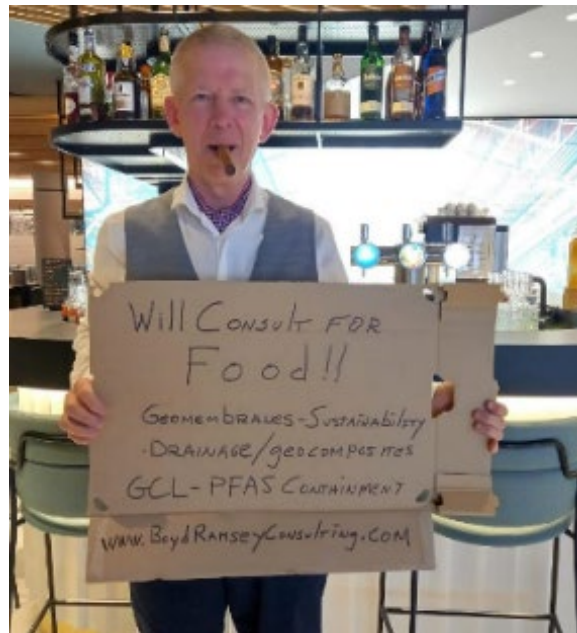 Will Consult for
Food!!
Geomembranes-Sustainability
-Drainage/geocomposites
GCL-PFAS Containment
www.BoydRamseyConsulting.com